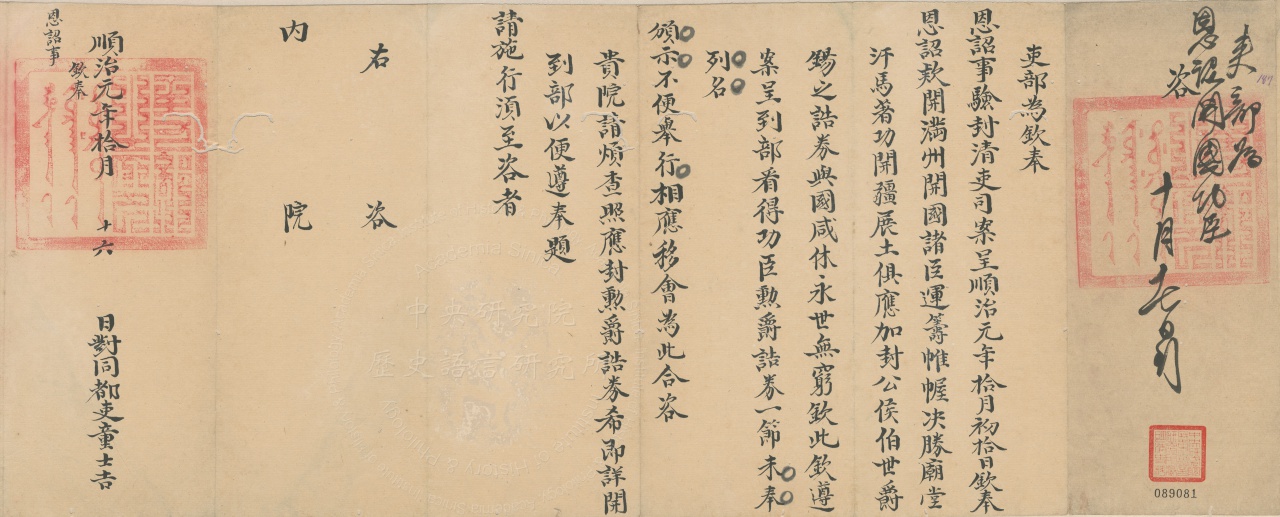 吏部為
恩詔開國功臣
咨
十月十七日到
187
089081
吏部為欽奉
恩詔事驗封清吏司案呈順治元年拾月初拾日欽奉
恩詔款開滿州開國諸臣運籌帷幄决勝廟堂
汗馬著功開疆展土俱應加封公侯伯世爵
錫之誥券與國咸休永世無窮欽此欽遵
案呈到部看得功臣勲爵誥券一節未奉
列名
頒示不便舉行相應移會為此合咨
貴院請煩查照應封勲爵誥券希即詳開
到部以便遵奉題
請施行湏至咨者
右咨
内院
順治元年拾月十六日對同都吏童士吉
欽奉
恩詔事
中央研究院
歷史語言研究所